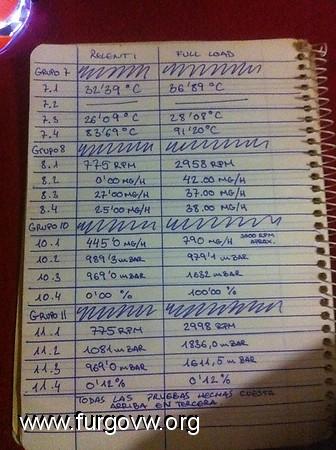 RELENTI FULL LOAD
GRUPO 7
7.1 32'39°C 36'89°C
7.2
7.3 26'09°C 28'08°C
7.4 83'69°C 91'20°C
Grupo 8
8.1 775 RPM 2958 RPM
8.2 0'00 MG/H 42.00 MG/H
8.3 27'00 MG/H 37.00 MG/H
8.4 25'00 MG/H 38.00 MG/H
GRUPO 10
10.1 445'0 MG/H 790 MG/H 3000 RPM APROX.
10.2 989'3 mBAR 979'1 mBAR
10.3 969'0 mBAR 1632 mBAR
10.4 0'00 % 100'00 %
Grupo 11
11.1 775 RPM 2998 RPM
11.2 1081 mBAR 1836,0 mBAR
11.3 969'0 mBAR 1611,5 mBAR
11.4 0'12 % 0'12 %
TODAS LAS PRUEBAS HECHAS CUESTA
ARRIBA EN TERCERA
www.furgovw.org